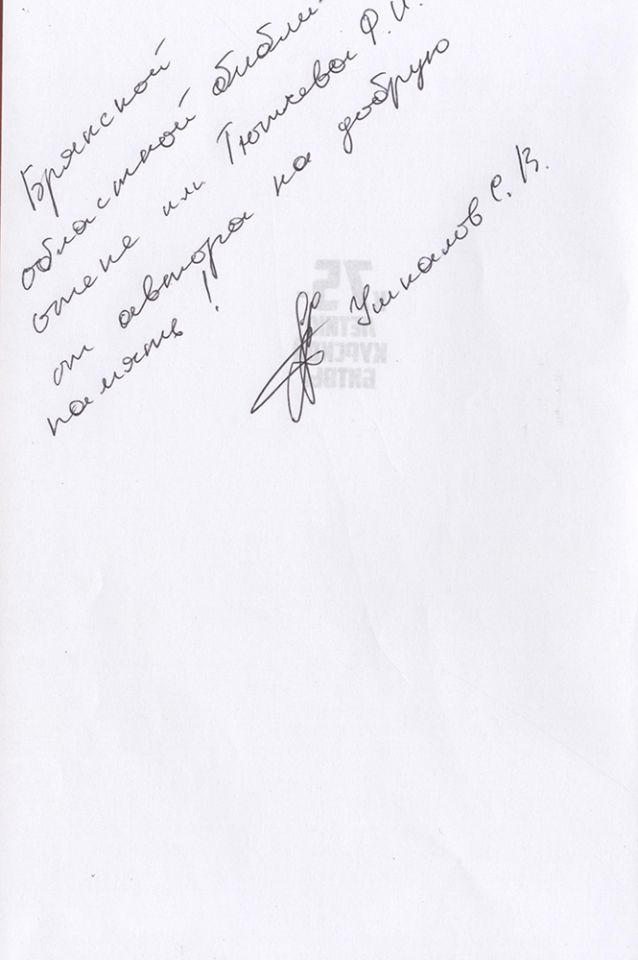 Брянской
областной библи-
отеке им. Тютчева Ф.И.
от автора на добрую
память!
Умкалов С.В.
75
ЛЕТИЮ
КУРСКОЙ
БИТВЫ